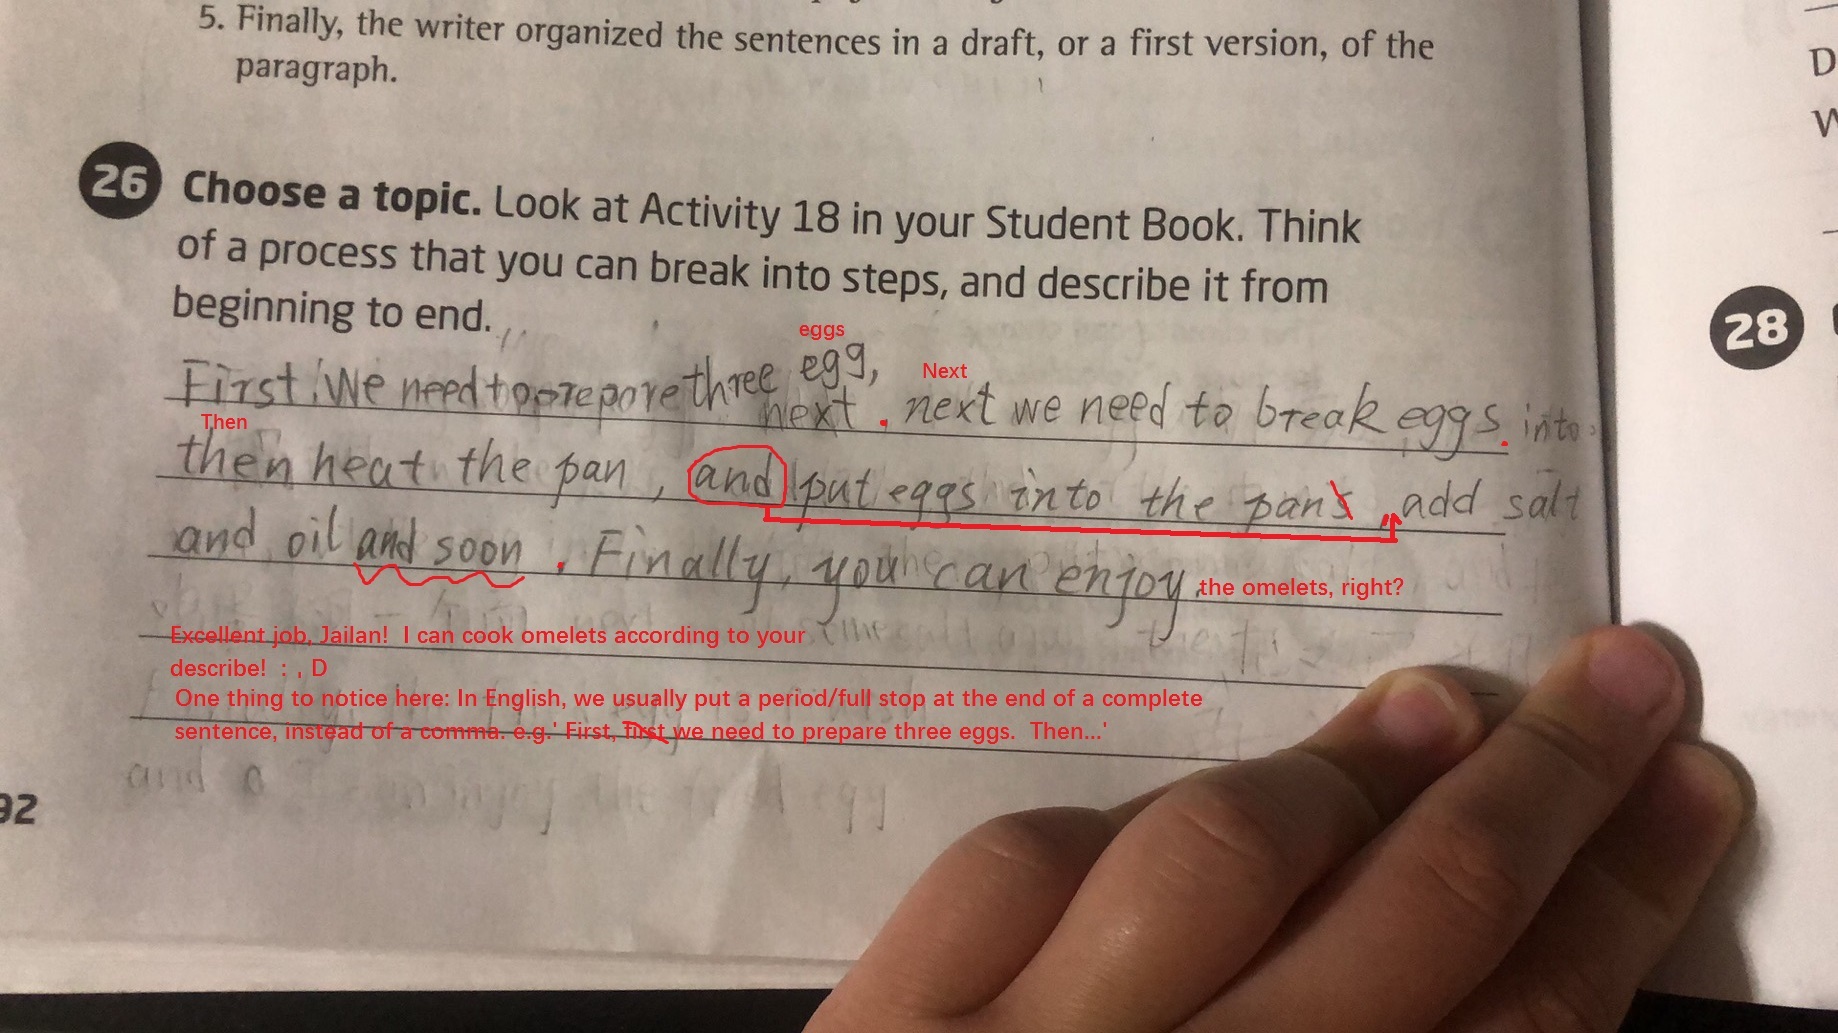 5. Finally, the writer organized the sentences in a draft, or a first version, of the
paragraph.
D
W
26 Choose a topic. Look at Activity 18 in your Student Book. Think
of a process that you can break into steps, and describe it from
beginning to end.
28
eggs
Next
First, We need to prepore three egg,
next . next we need to break eggs. into
Then
then heat the pan, and put eggs into the pans, add salt
and oil and soon . Finally, you can enjoy the omelets, right?
Excellent job, Jailan! I can cook omelets according to your
describe! : , D
One thing to notice here: In English, we usually put a period/full stop at the end of a complete
sentence, instead of a comma. e.g.' First, first we need to prepare three eggs. Then...'
and enjoy the egg
92